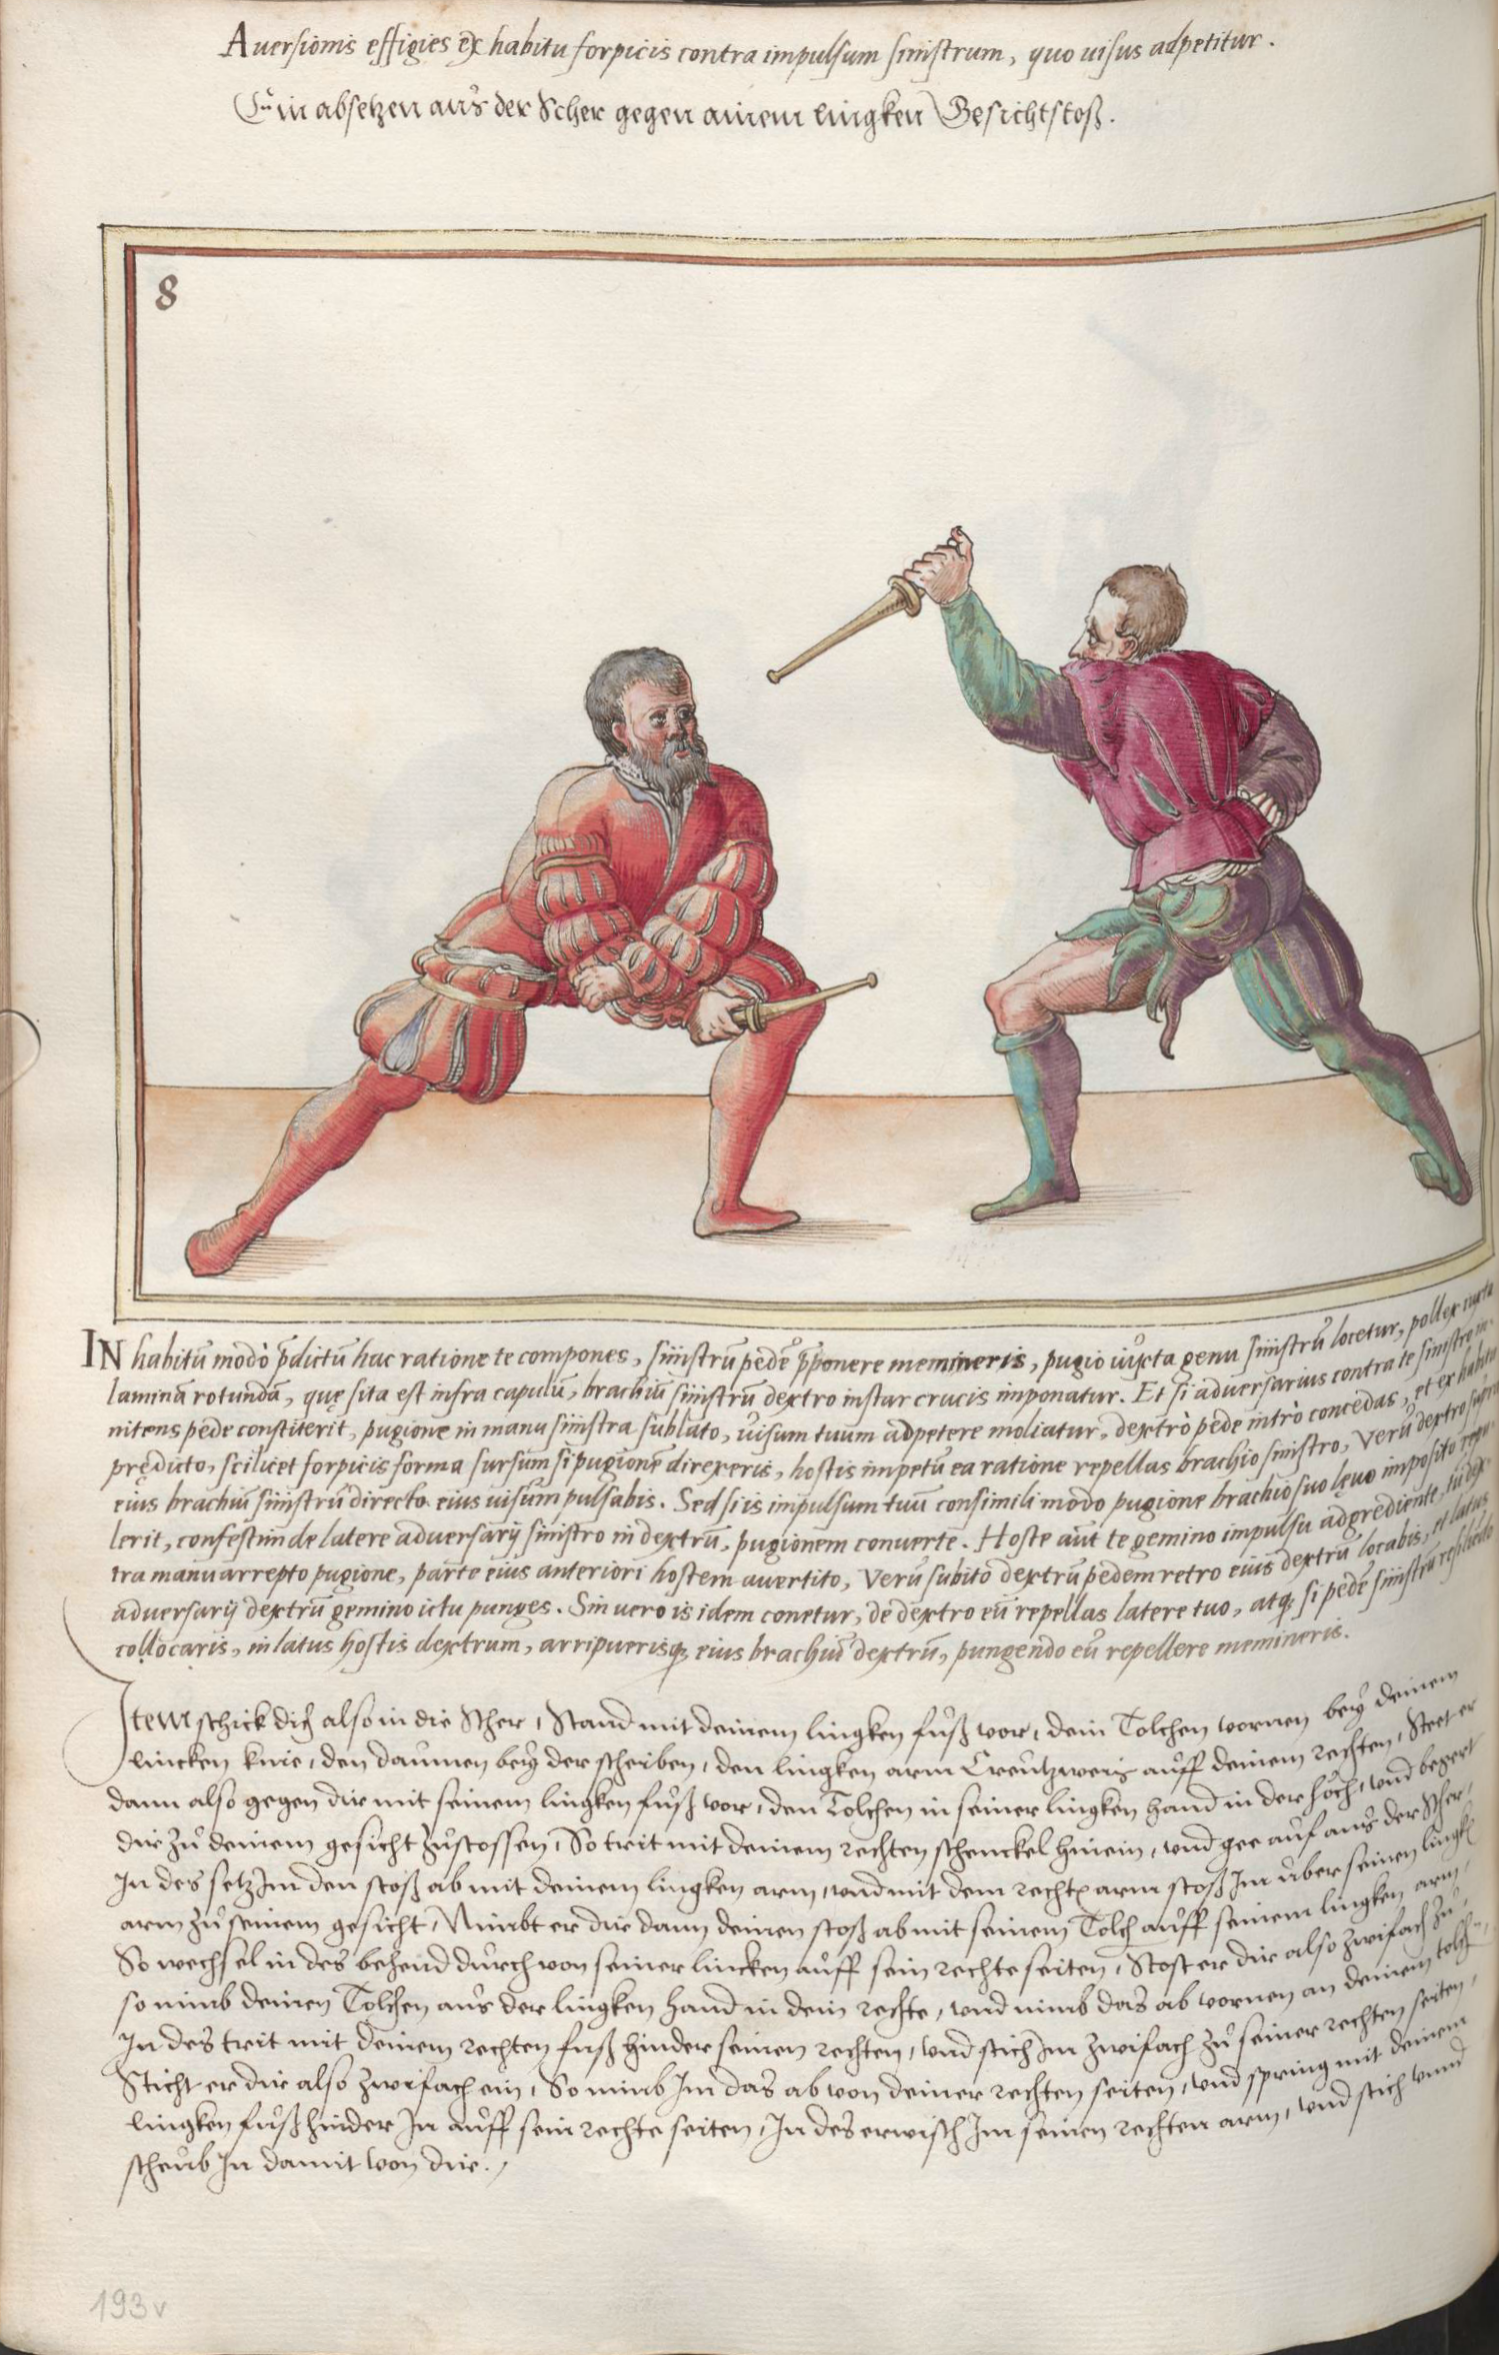 Aversionis effigies ex habitu forpicis contra impulsum sinistrum, quo uisus adpetitur.
Ein absetzen aus der Scher gegen ainem lingken Gesichtstoß.
8
IN habitū modò p̄dictū hac ratione te compones, sinistrū pedē p̄ponere memineris, pugio iuxta genu sinistrū locetur, pollex iuxta
laminā rotundā, quę sita est infra capulū, brachiū sinistrū dextro instar crucis imponatur. Et si adversarius contra te sinistro in⸗
nitens pede constiterit, pugione in manu sinistra sublato, uisum tuum adpetere moliatur, dextrò pede intrò concedas, et ex habitu
prędicto, scilicet forpicis forma sursum si pugionē direxeris, hostis impetū ea ratione repellas brachio sinistro, verū dextro supra
eius brachiū sinistrū directo eius uisum pulsabis. Sed si is impulsum tuū consimili modo pugione brachio suo lęuo imposito repu⸗
lerit, confestim de latere adversarij sinistro in dextrū, pugionem converte. Hoste aūt te gemino impulsu adgrediente, tu dex⸗
tra manu arrepto pugione, parte eius anteriori hostem avertito, verū subito dextrū pedem retro eius dextrū locabis, et latus
adversarij dextrū gemino ictu punges. Sin uero is idem conetur, de dextro eū repellas latere tuo, atq; si pedē sinistrū resiliendo
collocaris, in latus hostis dextrum, arripuerisq; eius brachiū dextrū, pungendo eū repellere memineris.
Item schick dich also in die Scher, Stand mit deinem lingken fuͦß vor, dein Tolchen vornen bey deinem
lincken knie, den daumen bey der scheiben, den lingken arm Creutzweis auff deinem rechten, Steet er
dann also gegen dir mit seinem lingken fuͦß vor, den Tolchen in seiner lingken hand in der hoch, und begert
dir zuͦ deinem gesicht zuͦstossen, So trit mit deinem rechten schenckel hinein, und gee auf aus der Scher,
In des setz Im den stoß ab mit deinem lingken arm, und mit dem rechtē arm stoß Im über seinen lingkē
arm zuͦ seinem gesicht, Nimbt er dir dann deinen stoß ab mit seinem Tolch auff seinem lingken arm,
So wechsel in des behend durch von seiner lincken auff sein rechte seiten, Stost er dir also zwifach zuͦ,
so nimb deinen Tolchen aus der lingken hand in dein rechte, und nimb das ab vornen an deinem tolchē,
In des trit mit deinem rechten fuß hinder seinen rechten, und stich Im zwifach zuͦ seiner rechten seiten,
Sticht er dir also zwifach ein, So nimb Im das ab von deiner rechten seiten, und spring mit deinem
lingken fuͦß hinder In auff sein rechte seiten, In des erwisch Im seinen rechten arm, und stich unnd
scheub In damit von dir.
193v